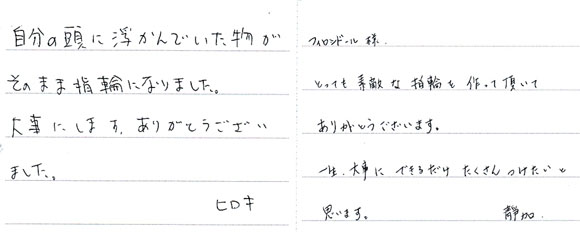 自分の頭に浮かんでいた物が
そのまま指輪になりました。
大事にします。ありがとうござい
ました。
ヒロキ
フィロンドール 様.
とっても 素敵な 指輪を 作って 頂いて
ありがとうございます。
一生、大事に できるだけ たくさん つけたいと
思います。 静加